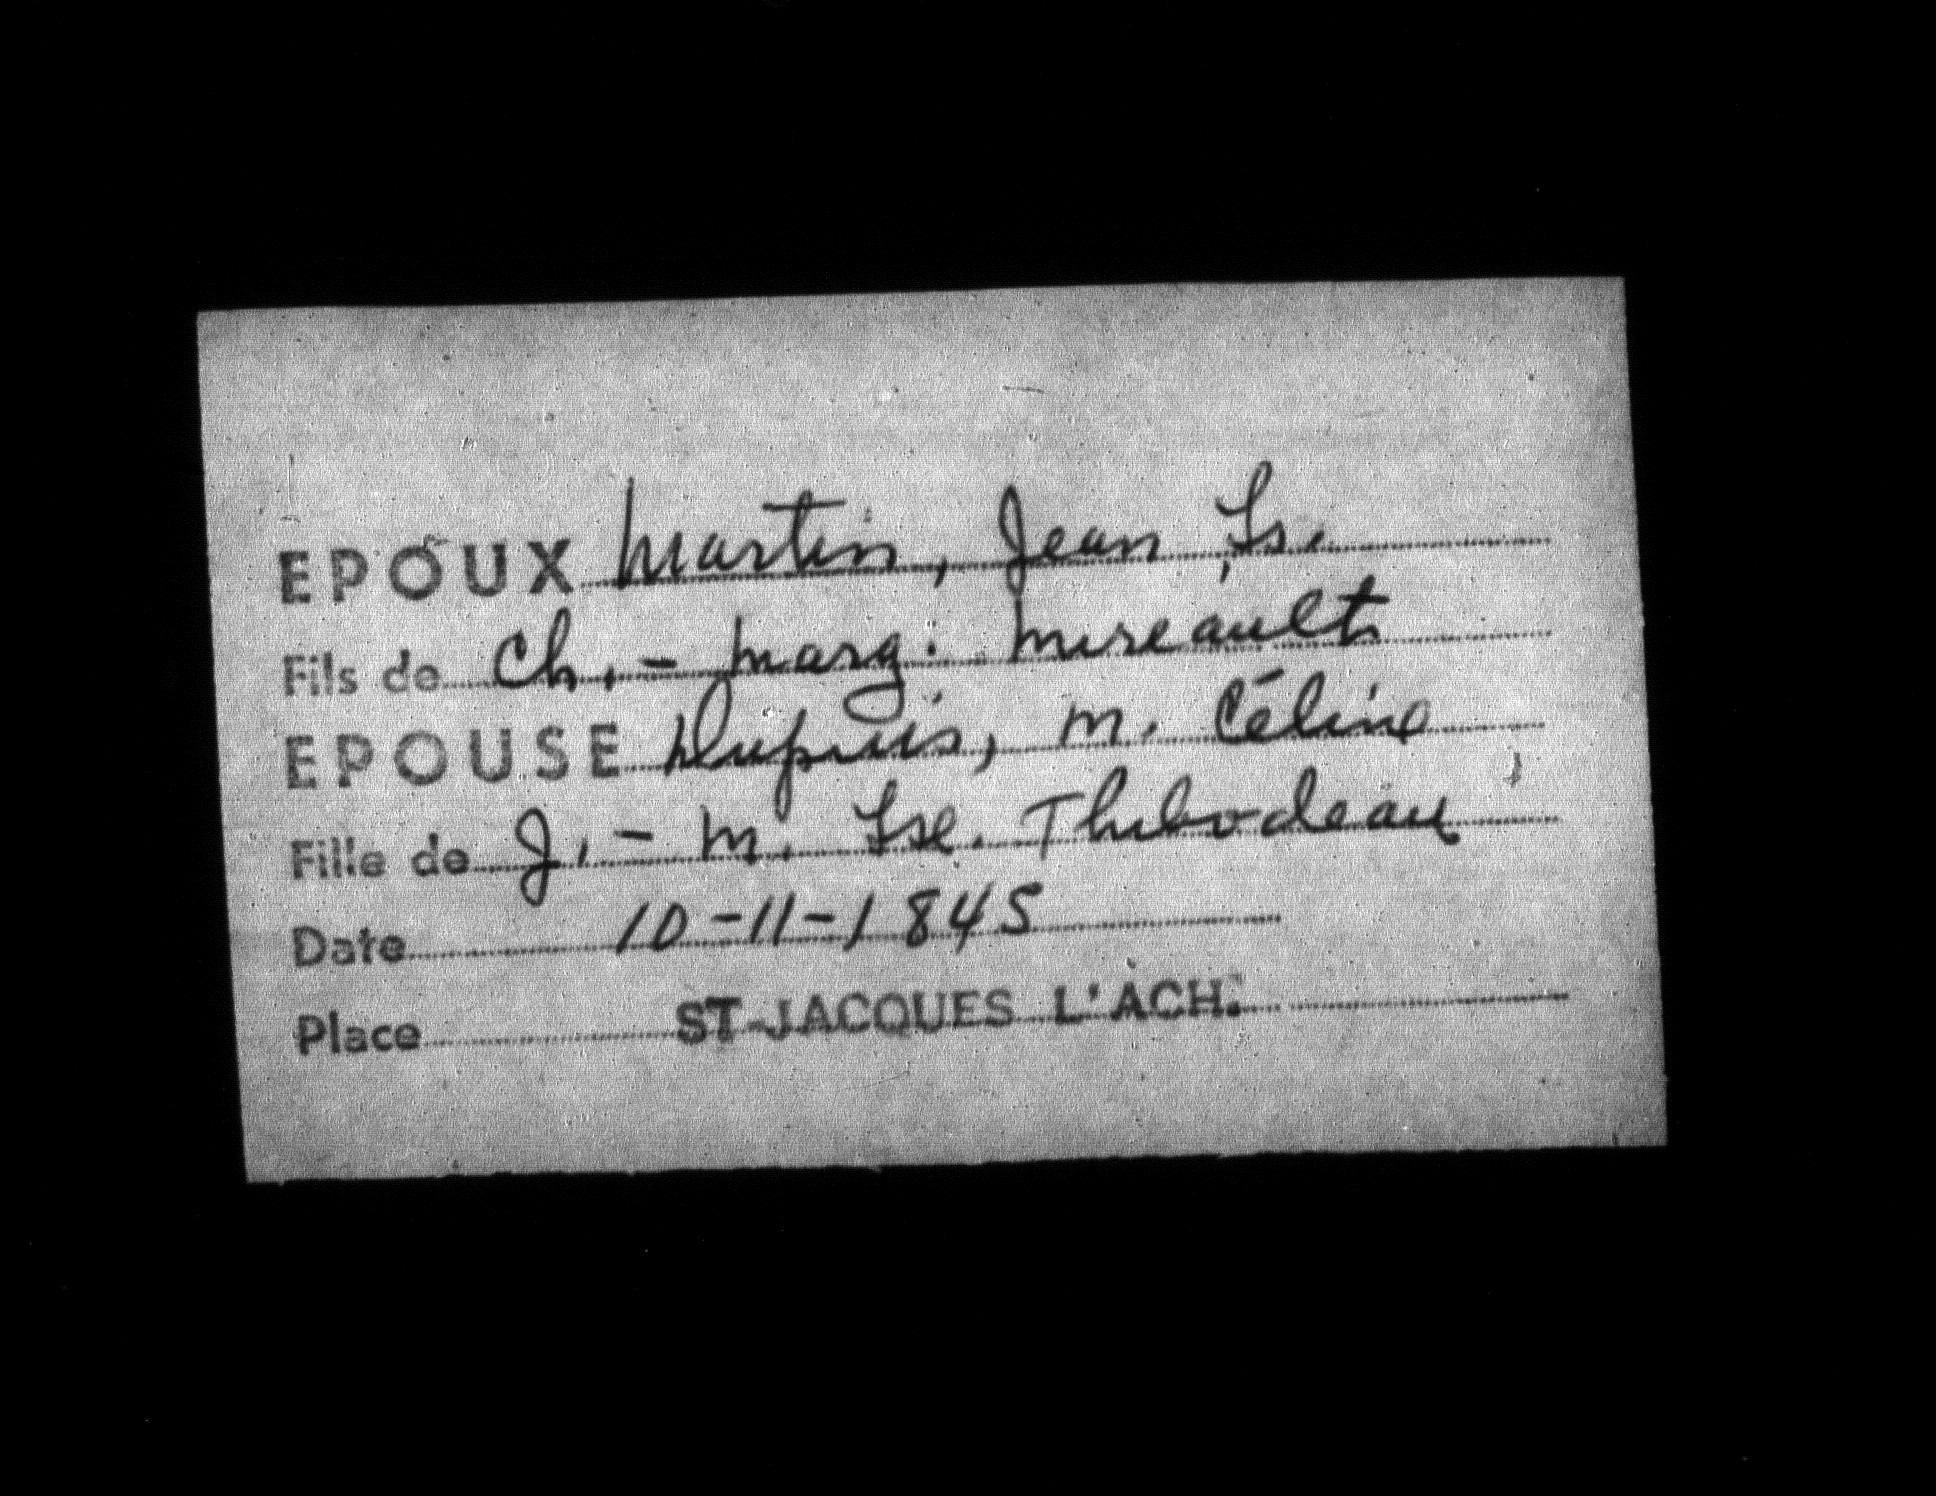 EPOUX Martin, Jean Frs.
Fils de Ch. - Marg. Mireault
EPOUSE Dupuis, M. Céline
Fille de J. - M. Frse. Thibodeau
Date 10-11-1845
Place ST-JACQUES L'ACH.